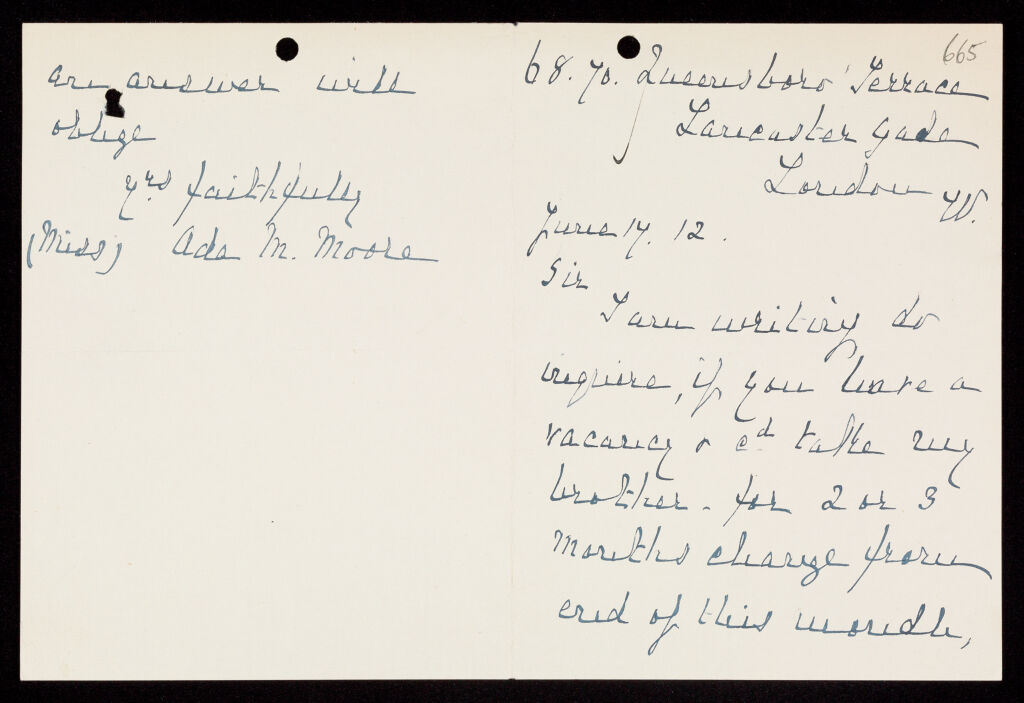 665
68.70. Queensboro' Terrace
Lancaster Gate
London W.
June 14. 12.
Sir
I am writing to
inquire, if you have a
vacancy & cd take my
brother - for 2 or 3
months change from
end of this month,
an answer will
oblige
yrs faithfully
(Miss) Ada M. Moore